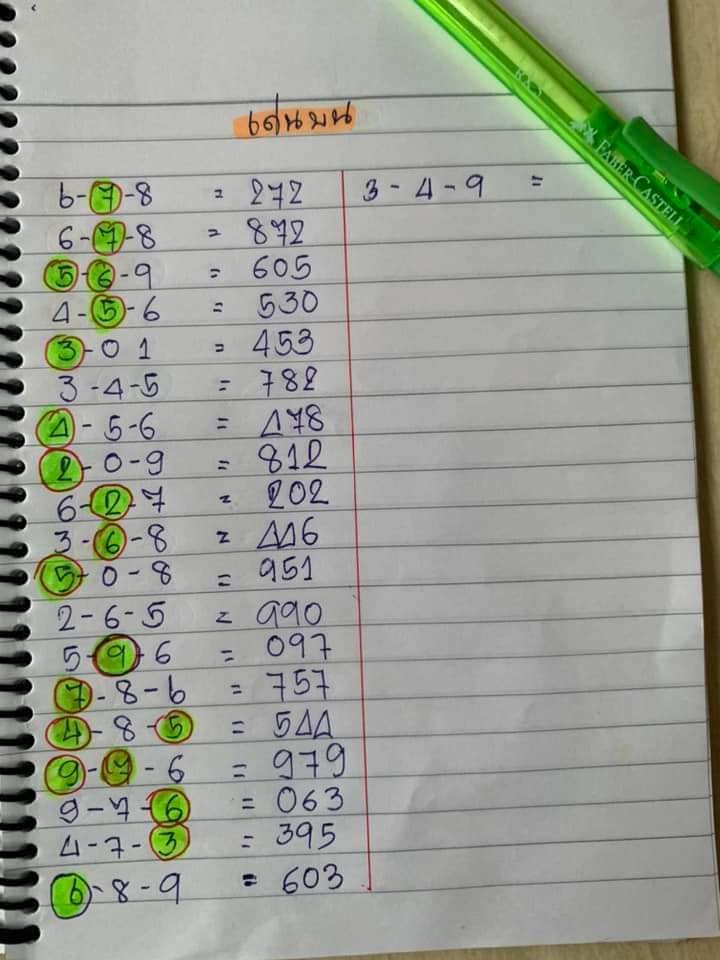 เด่นบน
6-7-8 = 272
6-7-8 = 872
5-6-9 = 605
4-5-6 = 530
3-0 1 = 453
3-4-5 = 782
4-5-6 = 478
2-0-9 = 812
6-2-7 = 202
3-6-8 = 446
5-0-8 = 951
2-6-5 = 990
5-9-6 = 097
7-8-6 = 757
4-8-5 = 544
9-7-6 = 979
9-7-6 = 063
4-7-3 = 395
6-8-9 = 603
3-4-9 =
RX5
FABER-CASTELL